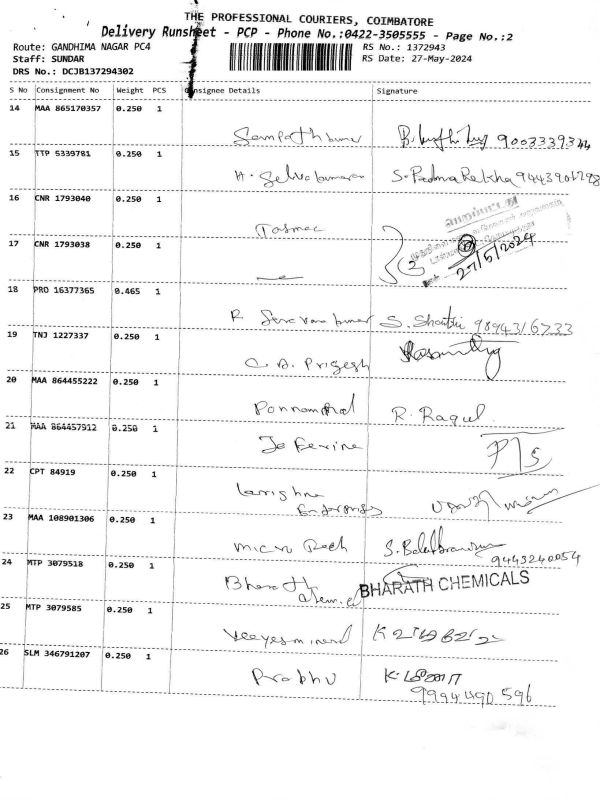 THE PROFESSIONAL COURIERS, COIMBATORE
Delivery Runsheet - PCP - Phone No.:0422-3505555 - Page No.:2
Route: GANDHIMA NAGAR PC4
RS No.: 1372943
Staff: SUNDAR
RS Date: 27-May-2024
DRS No.: DCJB137294302
S No Consignment No Weight PCS Consignee Details Signature
14 MAA 865170357 0.250 1
Sampathkumar 9003339344
15 TTP 5339781 0.250 1
H. Selvakumaran S. Padma Rekha
16 CNR 1793040 0.250 1
Tasmac
17 CNR 1793038 0.250 1
27/5/2024
18 PRO 16377365 0.465 1
R Saravanakumar S. Shanthi 9894316733
19 TNJ 1227337 0.250 1
C. D. Prigesh
20 MAA 864455222 0.250 1
Ponnammal R. Ragul
21 MAA 864457912 0.250 1
22 CPT 84919 0.250 1
Enterprises
23 MAA 108901306 0.250 1
Micro Tech 9443240054
24 MTP 3079518
Bharath Chemical BHARATH CHEMICALS
25 MTP 3079585 0.250 1
26 SLM 346791207 0.250 1
Prabhu K. மீனா
9994490596